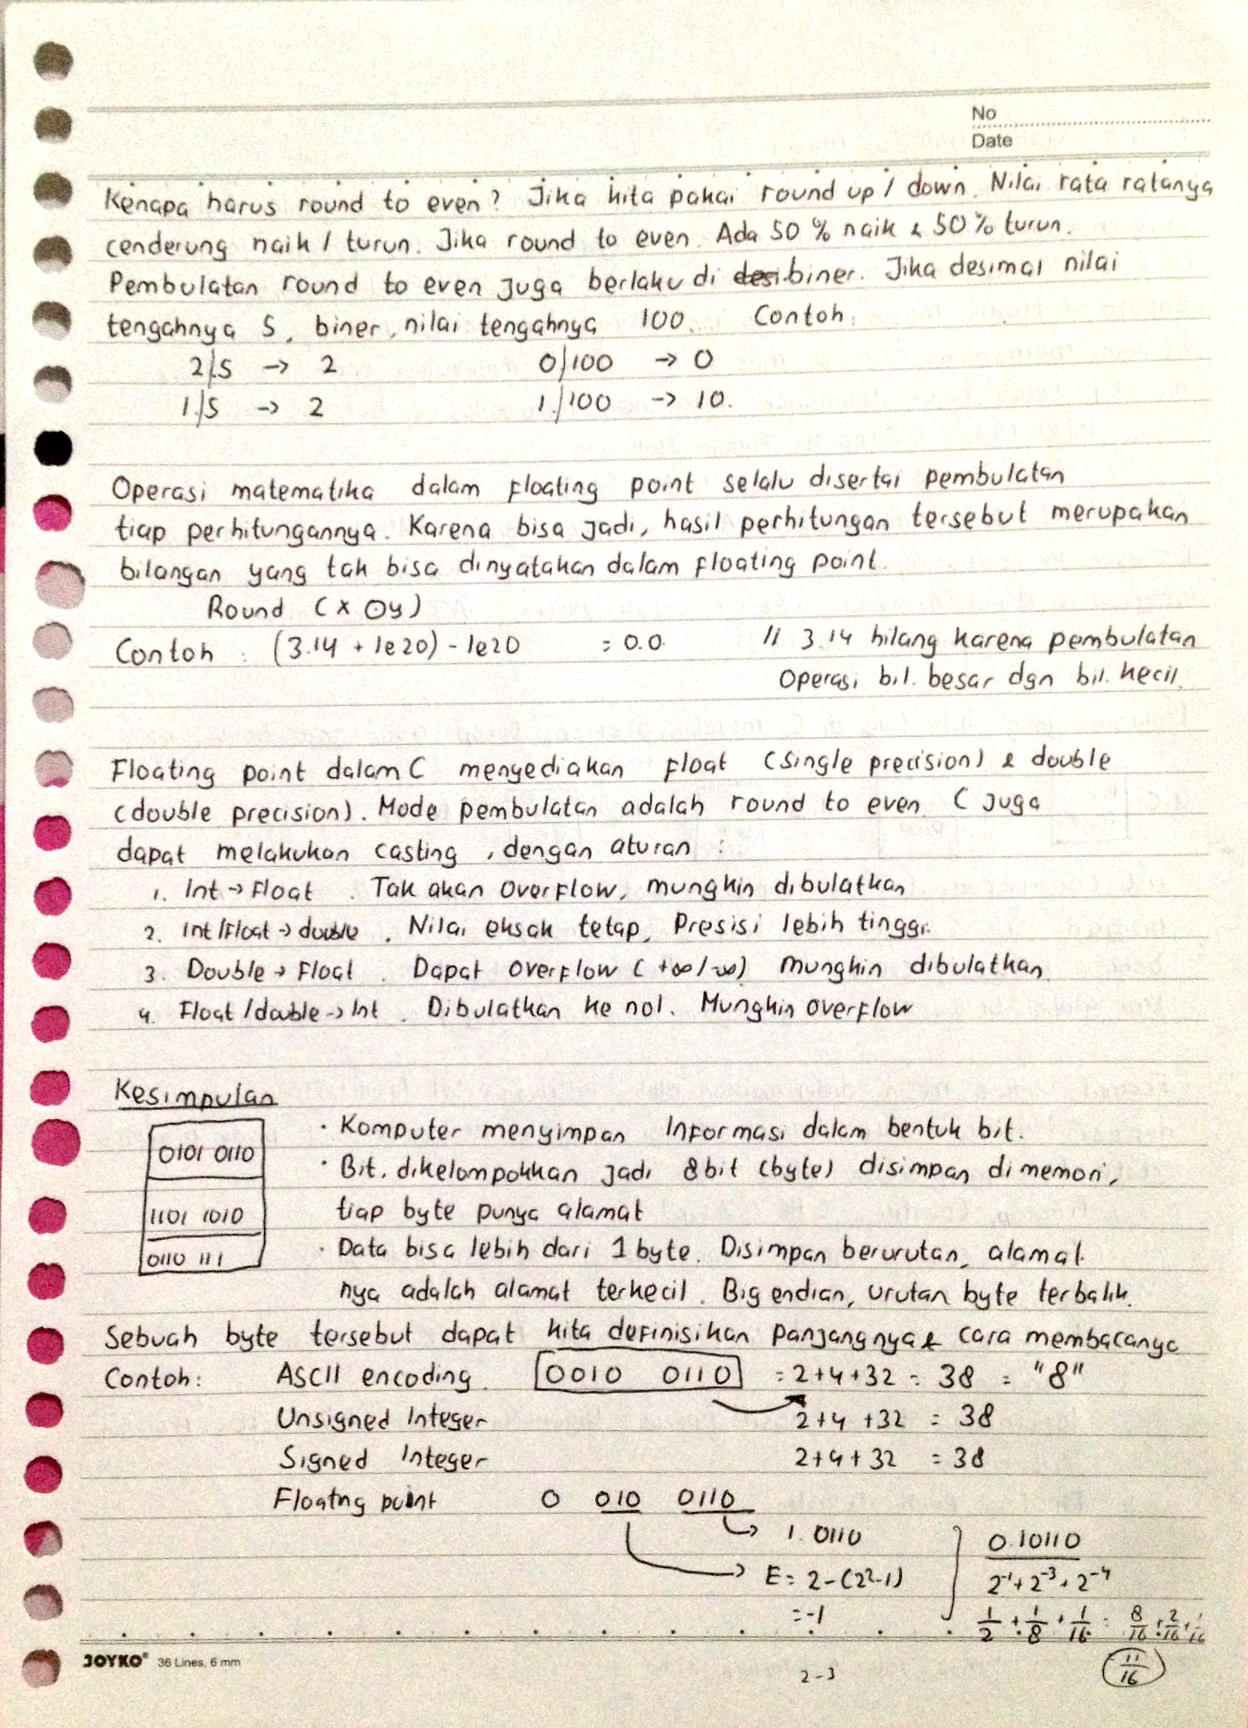 No
Date
Kenapa harus round to even? Jika kita pakai round up / down. Nilai rata ratanya
cenderung naik / turun. Jika round to even. Ada 50 % naik & 50 % turun.
Pembulatan round to even juga berlaku di desi biner. Jika desimal nilai
tengahnya 5, biner, nilai tengahnya 100. Contoh:
2|.5 → 2 0|100 → 0
1.|5 → 2 1.|100 → 10.
Operasi matematika dalam floating point selalu disertai pembulatan
tiap perhitungannya. Karena bisa jadi, hasil perhitungan tersebut merupakan
bilangan yang tak bisa dinyatakan dalam floating point.
Round (x ⊙ y)
Contoh : (3.14 + 1e20) - 1e20 = 0.0. // 3.14 hilang karena pembulatan
Operasi bil. besar dgn bil. kecil.
Floating point dalam C menyediakan float (single precision) & double
(double precision). Mode pembulatan adalah round to even. C juga
dapat melakukan casting, dengan aturan :
1. Int → Float. Tak akan overflow, mungkin dibulatkan
2. Int/Float → double. Nilai eksak tetap, Presisi lebih tinggi.
3. Double → Float. Dapat overflow (+∞/-∞) Mungkin dibulatkan
4. Float/double → Int. Dibulatkan ke nol. Mungkin overflow
Kesimpulan
0101 0110 · Komputer menyimpan Informasi dalam bentuk bit.
· Bit, dikelompokkan jadi 8 bit (byte) disimpan di memori,
1101 1010 tiap byte punya alamat
0110 111 · Data bisa lebih dari 1 byte. Disimpan berurutan, alamat
nya adalah alamat terkecil. Big endian, urutan byte terbalik.
Sebuah byte tersebut dapat kita definisikan panjangnya & cara membacanya
Contoh: ASCII encoding. 0010 0110 = 2+4+32 = 38 = "8"
Unsigned Integer 2+4+32 = 38
Signed Integer 2+4+32 = 38
Floatng point 0 010 0110
1.0110 0.10110
E = 2-(2²-1) 2⁻¹+2⁻³+2⁻⁴
= -1 1/2 + 1/8 + 1/16 = 8/16 + 2/16 + 1/16
11/16
JOYKO® 36 Lines, 6 mm
2-3